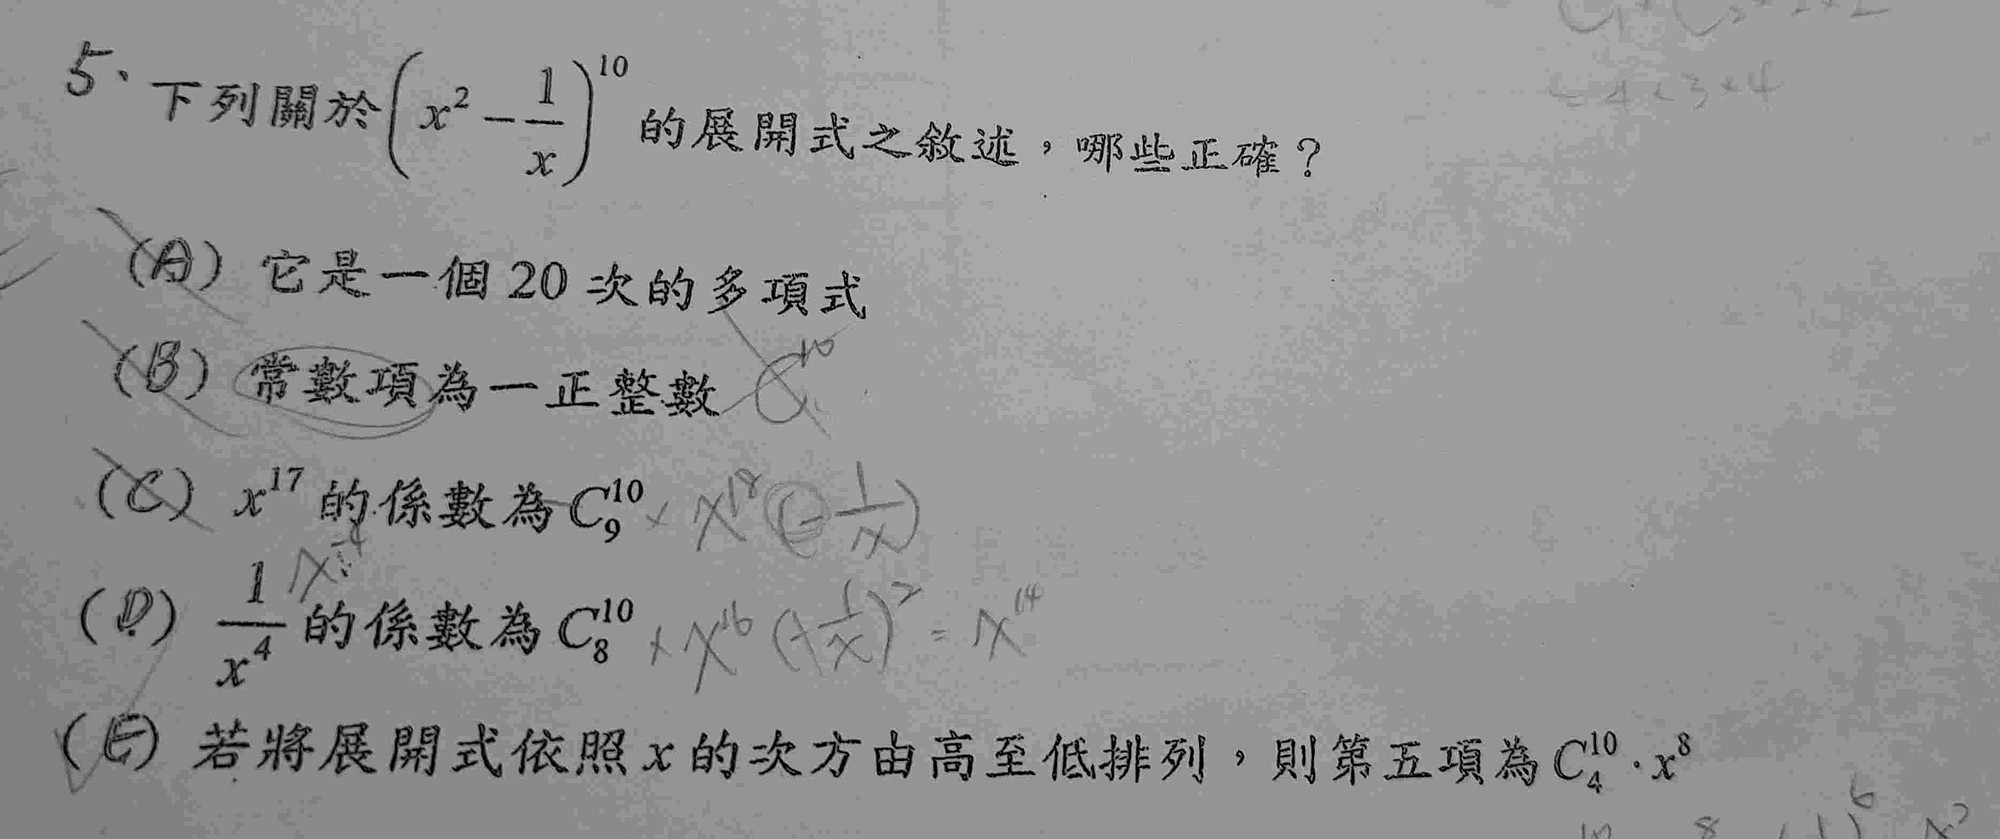 5. 下列關於(x² - 1/x)¹⁰ 的展開式之敘述，哪些正確？
(A) 它是一個 20 次的多項式
(B) 常數項為一正整數 C¹⁰
(C) x¹⁷ 的係數為 C¹⁰₉ × x¹⁸ (-1/x)
x⁻⁴
(D) 1/x⁴ 的係數為 C¹⁰₈ × x¹⁶ (+1/x)² = x¹⁴
(E) 若將展開式依照 x 的次方由高至低排列，則第五項為 C¹⁰₄ · x⁸